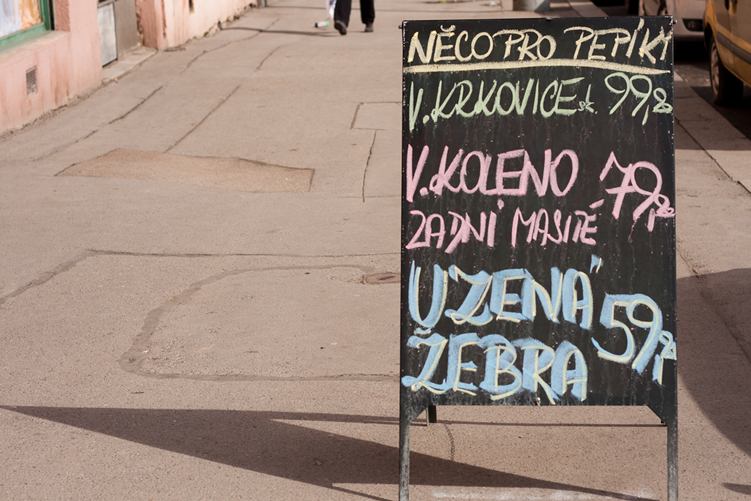 NĚCO PRO PEPÍKY
V. KRKOVICE s.k. 99,-
V. KOLENO 79,-
ZADNÍ MASITÉ
UZENÁ 59,-
ŽEBRA